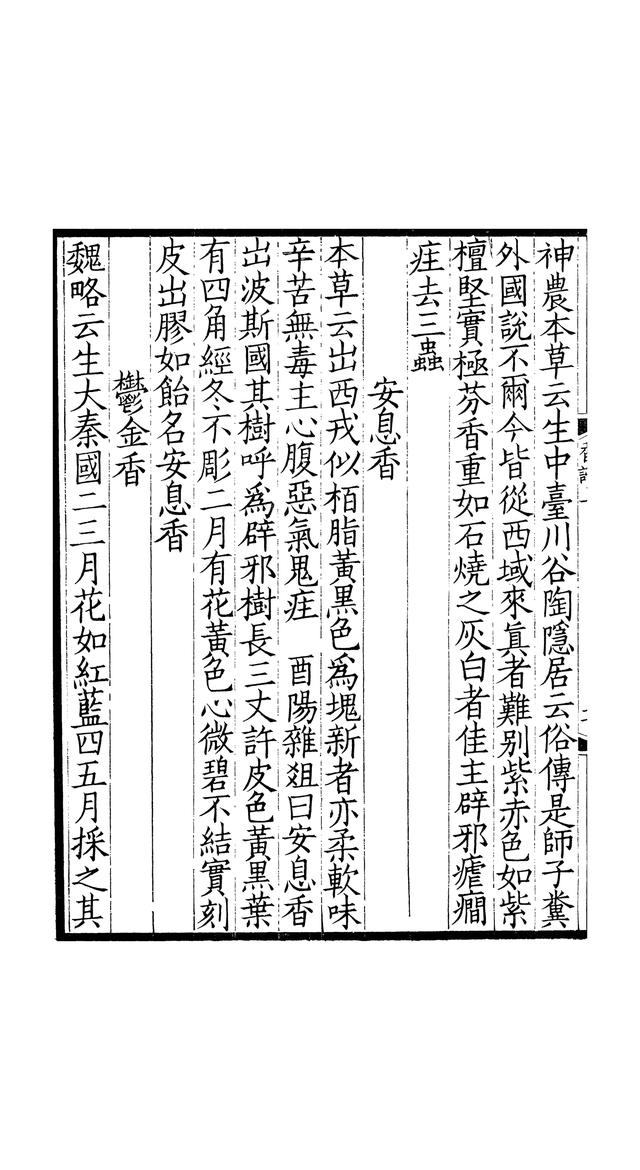 神農本草云生中臺川谷陶隱居云俗傳是師子糞
外國說不爾今皆從西域來眞者難別紫赤色如紫
檀堅實極芬香重如石燒之灰白者佳主辟邪瘧癎
疰去三蟲
安息香
本草云出西戎似栢脂黃黑色爲塊新者亦柔軟味
辛苦無毒主心腹惡氣鬼疰　酉陽雜爼曰安息香
出波斯國其樹呼爲辟邪樹長三丈許皮色黃黑葉
有四角經冬不彫二月有花黃色心微碧不結實刻
皮出膠如飴名安息香
鬱金香
魏略云生大秦國二三月花如紅藍四五月採之其